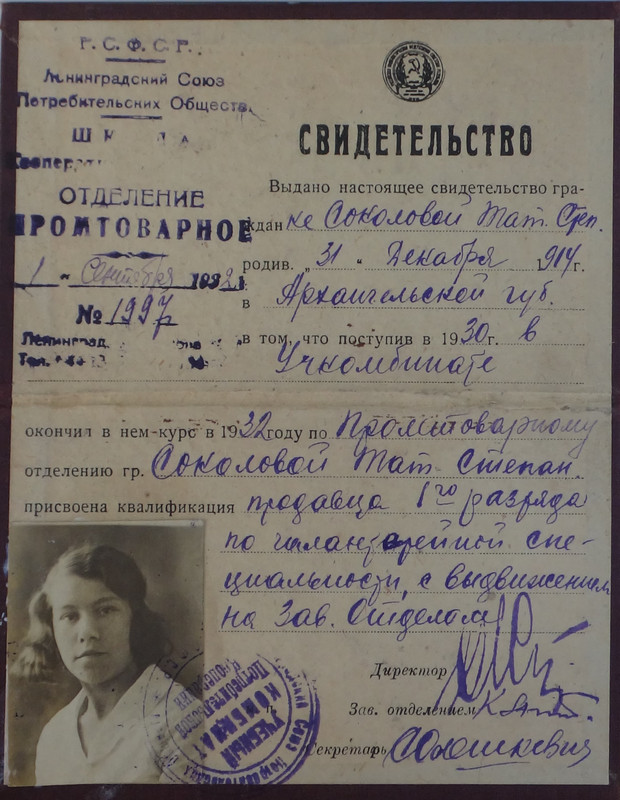 Р. С. Ф. С. Р.
Ленинградский Союз
Потребительских Обществ
ОТДЕЛЕНИЕ
ПРОМТОВАРНОЕ
1 " Сентября 1932 г.
№ 1997
Ленинград,
Тел.
СВИДЕТЕЛЬСТВО
Выдано настоящее свидетельство гра-
ждан ке Соколовой Тат. Степ.
родив. „31 " Декабря 1914 г.
в Архангельской губ.
в том, что поступив в 1930 г. в
Учкомбинате
окончил в нем-курс в 1932 году по Промтоварному
отделению гр. Соколовой Тат. Степан.
присвоена квалификация продавца 1го разряда
по галантерейной спе-
циальности, с выдвижением
на Зав. Отделом
Директор
Зав. отделением
Секретарь
УЧЕБНЫЙ
КОМБИНАТ